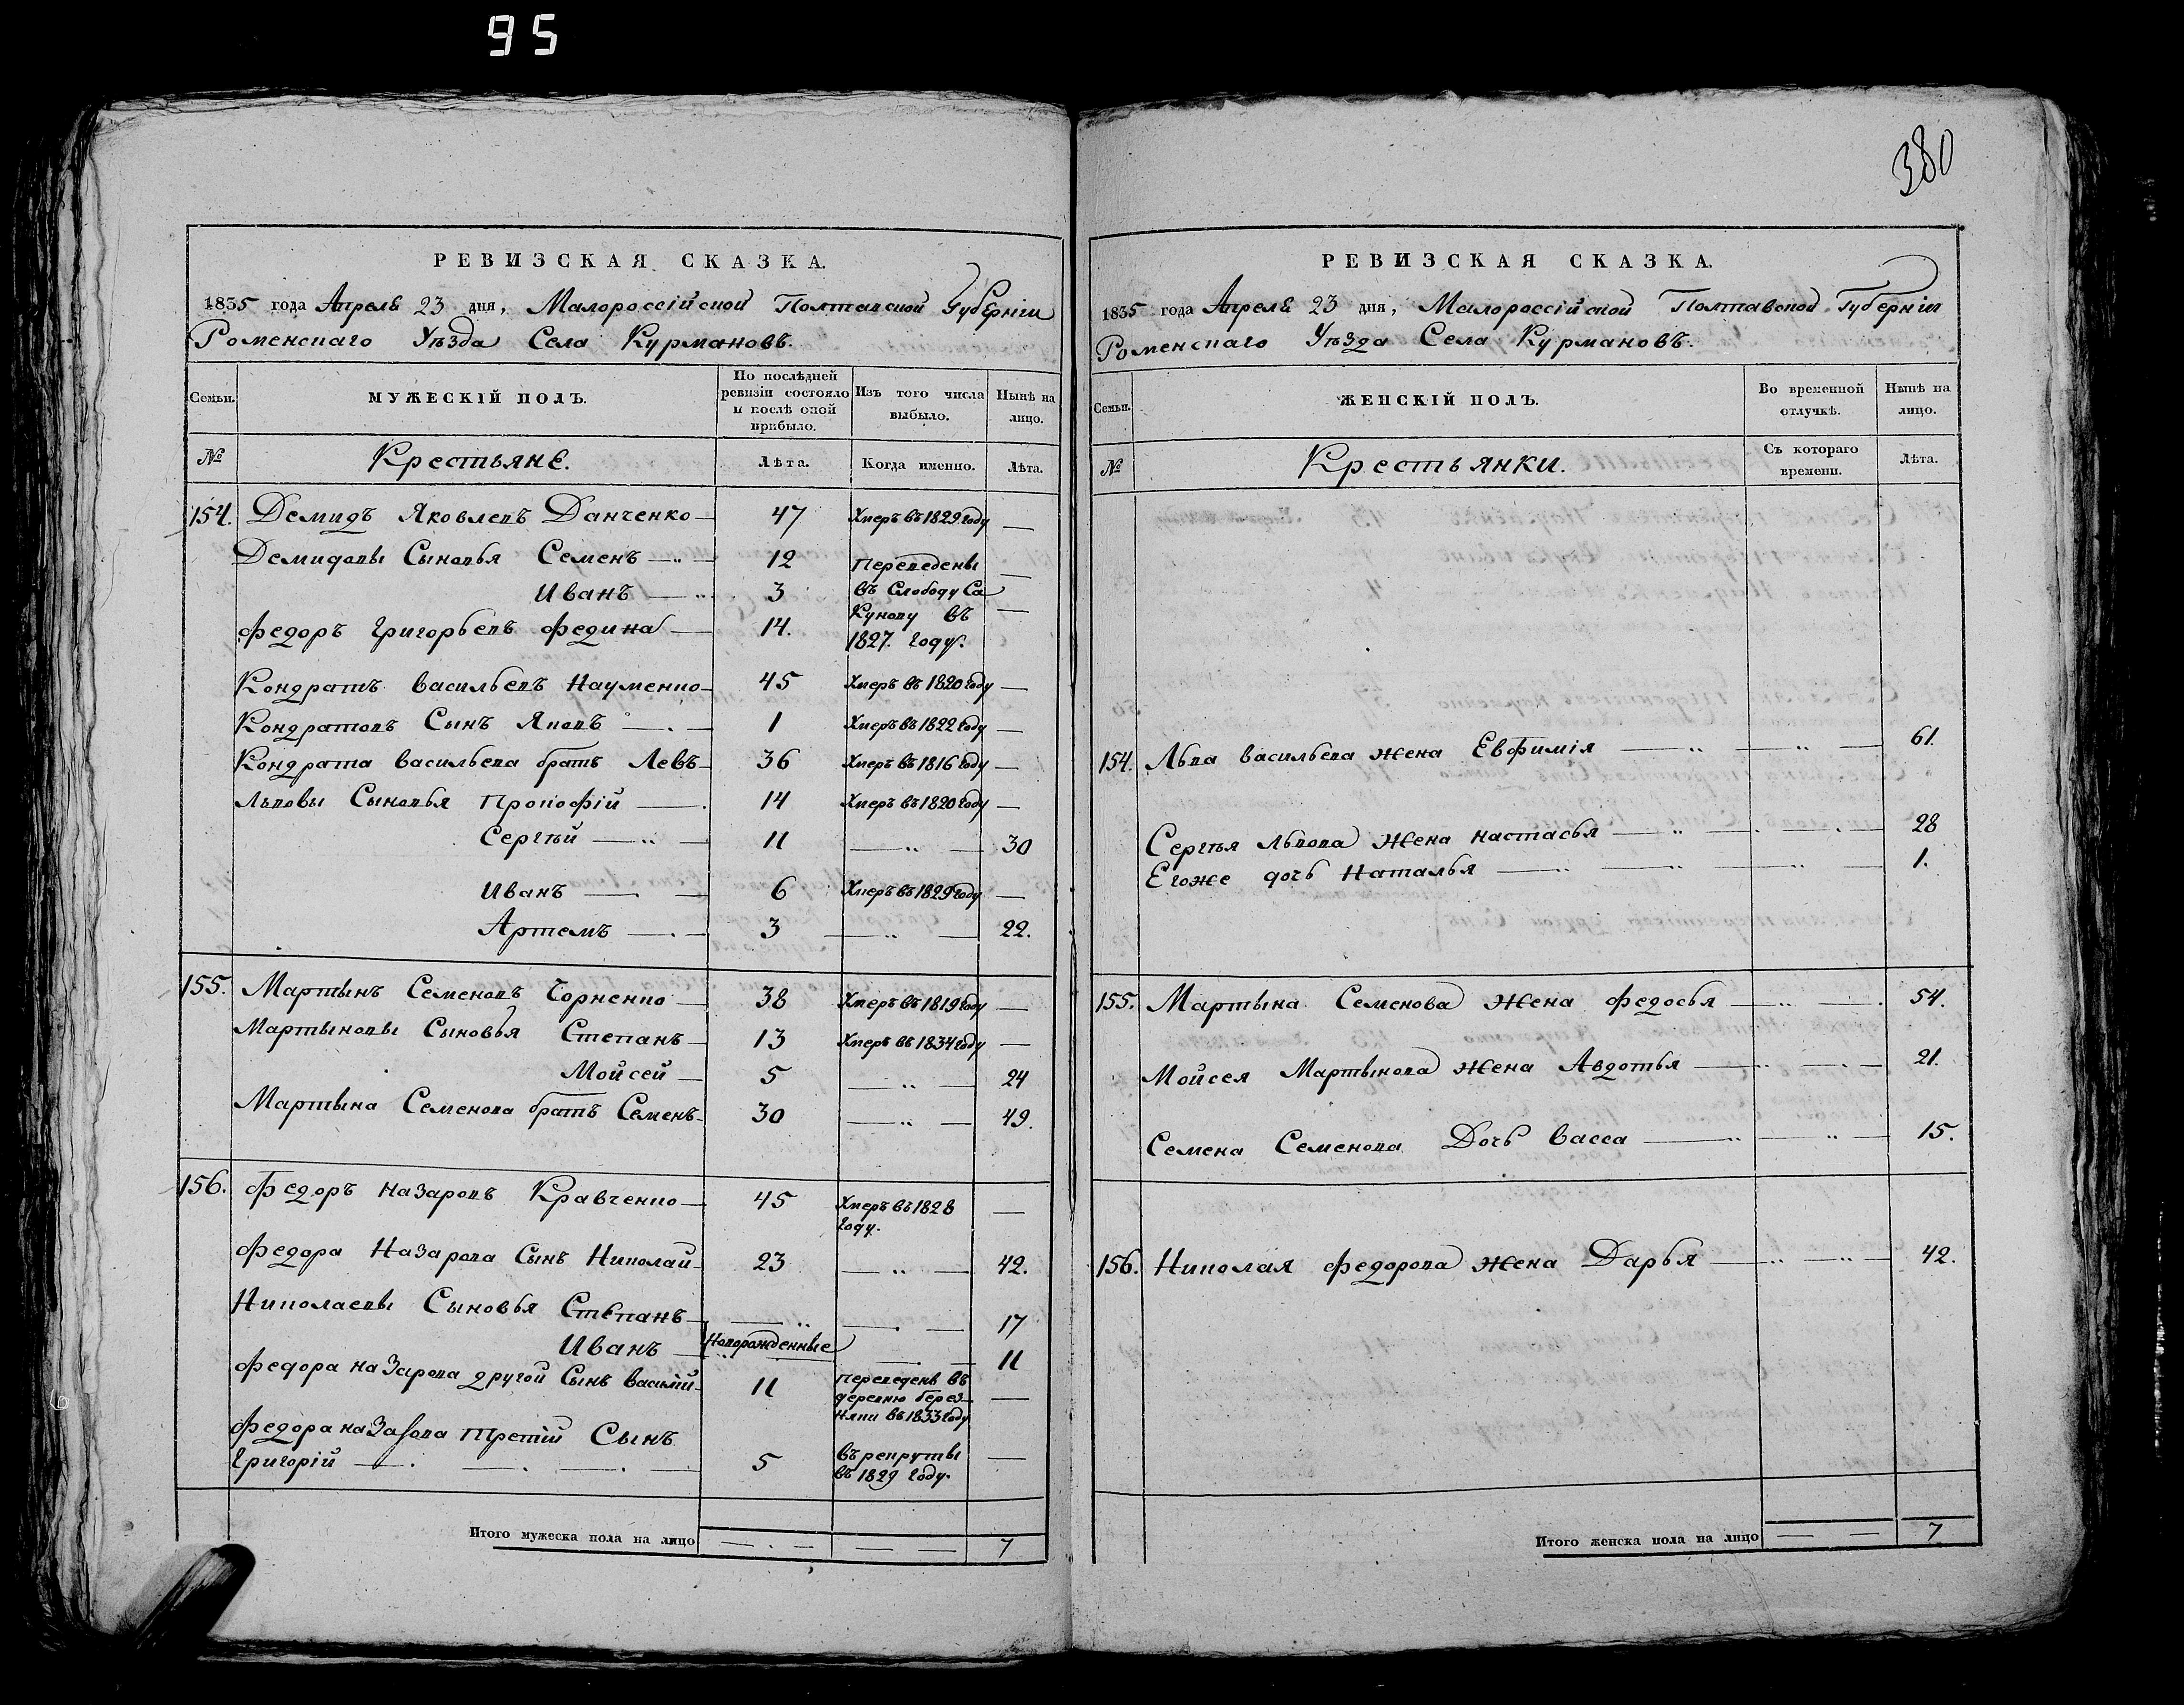 95
380
РЕВИЗСКАЯ СКАЗКА.
1835 года Апреля 23 дня, Малороссійской Полтавской Губерніи
Роменскаго Уѣзда Села Курмановъ.
Семьи.
МУЖЕСКІЙ ПОЛЪ.
По послѣдней ревизіи состояло и послѣ оной прибыло.
Изъ того числа выбыло.
Нынѣ на лицо.
№ Крестьяне. Лѣта. Когда именно. Лѣта.
154. Демидъ Яковлевъ Данченко 47 Умеръ въ 1829 году —
Демидовы Сыновья Семенъ 12 Переведены —
Иванъ 3 въ Слободу Са
Федоръ Григорьевъ Федина 14. кунову въ —
1827. году.
Кондратъ Васильевъ Науменко 45 Умеръ въ 1820 году —
Кондратовъ Сынъ Яковъ 1 Умеръ въ 1822 году —
Кондрата Васильева братъ Левъ 36 Умеръ въ 1816 году —
Львовы Сыновья Прокофій 14 Умеръ въ 1820 году —
Сергѣй 11 — 30
Иванъ 6 Умеръ въ 1829 году —
Артемъ 3 — 22.
155. Мартынъ Семеновъ Чорненко 38 Умеръ въ 1819 году —
Мартыновы Сыновья Степанъ 13 Умеръ въ 1834 году —
Мойсей 5 — 24
Мартына Семенова братъ Семенъ 30 — 49.
156. Федоръ Назаровъ Кравченко 45 Умеръ въ 1828 —
году.
Федора Назарова Сынъ Николай 23 — 42.
Николаевы Сыновья Степанъ — — 17
Иванъ Новорожденные — 11
Федора Назарова другой Сынъ Василій 11 Переведенъ въ —
деревню Берез-
няки въ 1833 году
Федора Назарова Третій Сынъ
Григорій 5 въ рекруты —
въ 1829 году.
Итого мужеска пола на лицо — — 7
РЕВИЗСКАЯ СКАЗКА.
1835 года Апреля 23 дня, Малороссійской Полтавской Губерніи
Роменскаго Уѣзда Села Курмановъ.
Семьи.
ЖЕНСКІЙ ПОЛЪ.
Во временной отлучкѣ.
Нынѣ на лицо.
№ Крестьянки. Съ котораго времени. Лѣта.
154. Льва Васильева жена Евфимія — 61.
Сергѣя Львова жена Настасья — 28
Егоже дочь Наталья — 1.
155. Мартына Семенова жена Федосья — 54.
Мойсея Мартынова жена Авдотья — 21.
Семена Семенова Дочь Васса — 15.
156. Николая Федорова жена Дарья — 42.
Итого женска пола на лицо — — 7